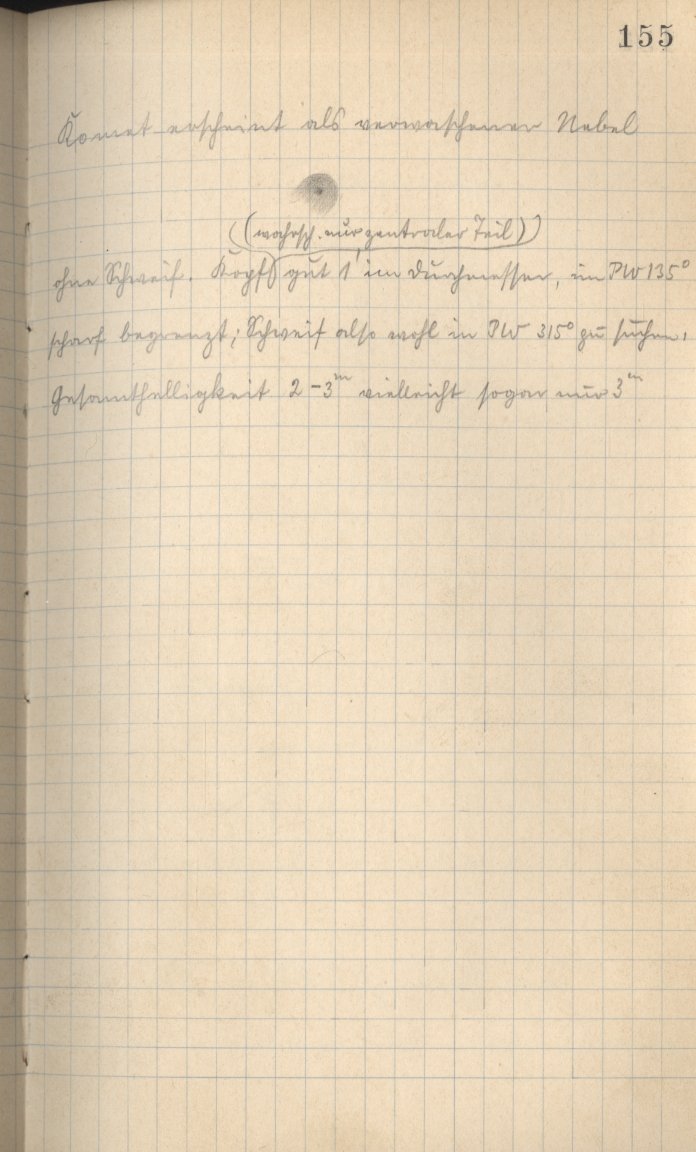 155
Komet erscheint als verwaschener Nebel
(wahrsch. nur zentraler Teil)
ohne Schweif. Kopf gut 1' im Durchmesser, im PW 135°
scharf begrenzt; Schweif also wohl in PW 315° zu suchen,
Gesamthelligkeit 2-3ᵐ vielleicht sogar nur 3ᵐ